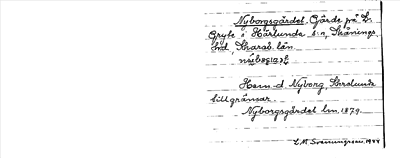 Nyborgsgärdet. Gärde på L.
Gryte i Härlunda sn, Skånings
hd, Skarab. län.
Hem. d. Nyborg, Härlunda
till gränsar.
Nyborgsgärdet lm. 1879.
L.M. Svenungsson. 1944